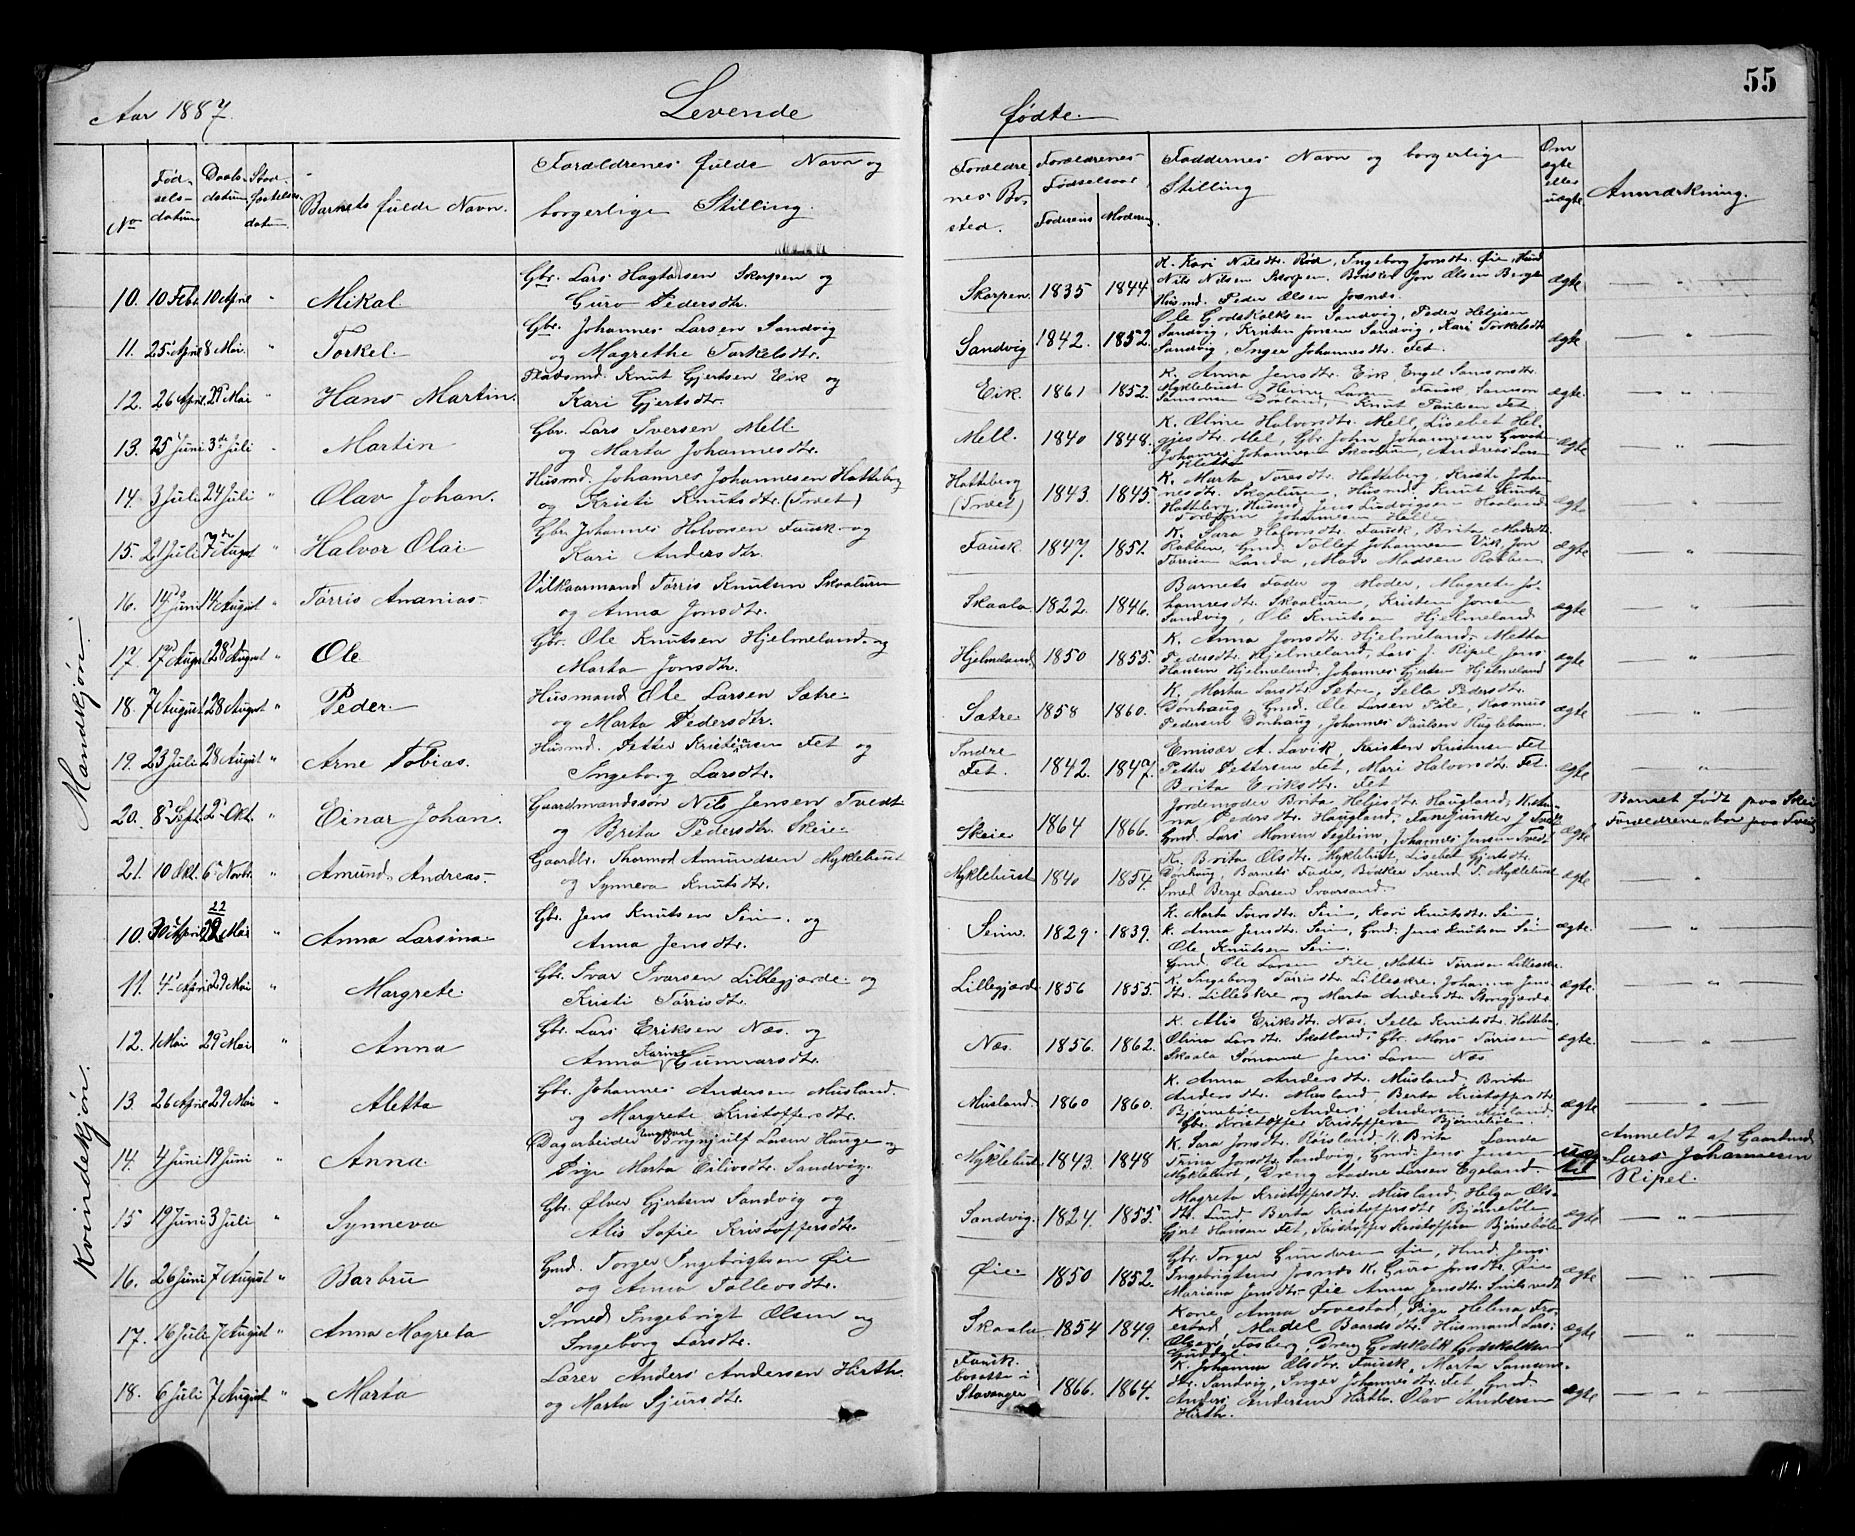 55
Aar 1887. Levende fødte.
No Fødselsdatum Daabsdatum Stadfæstelsesdatum Barnets fulde Navn. Forældrenes fulde Navn og borgerlige Stilling. Forældrenes Bosted. Forældrenes Fødselsaar Faderens Moderens Faddernes Navn og borgerlige Stilling Om ægte eller uægte Anmærkning.
Mandkjøn.
10. 10 Febr 10 April " Mikal Gbr. Lars Skorpen og
Guro Pedersdtr. Skorpen 1835 1844 ægte — " —
K. Kari Nilsdtr. Røe, Ingeborg Jonsdtr. Øie, Hmd
Nils Nilsen Skorpen. Jon Olsen Berge
Husmd. Peder Olsen Josnæs.
11. 25 April 8 Mai. " Torkel. Gbr. Johannes Larsen Sandvig
og Magrethe Torkelsdtr. Sandvig 1842. 1852. ægte — " —
Ole Godskalksen Sandvig, Peder Helgesen
Sandvig, Kristen Jonsen Sandvig, Kari Torkelsdtr
Sandvig, Inger Johannesdtr. Fet.
12. 26 April 29 Mai " Hans Martin. Pladsmd. Knut Gjertsen Eik og
Kari Gjertsdtr. Eik 1861 1852. ægte. — " —
K. Anna Jensdtr. Eik, Engel Samsonsdtr.
Myklebust Larsen Fausk Samson
Samsonsen Knut Paulsen Fet
13. 25 Juni 3 Juli " Martin Gbr. Lars Iversen Mell.
og Marta Johannesdtr. Mell. 1840 1848. ægte — " —
K. Oline Halvorsdtr. Mell, Lisebet Helgesdtr.
Mel, Gbr. John Johannesen
Johannes Johannesen Skaaluren, Andreas Larsen
Kletta
14. 3 Juli 24 Juli " Olav Johan. Husmd. Johannes Johannesen Hatteberg
og Kristi Knutsdtr. (Trået) Hatteberg
(Trået) 1843. 1845. ægte "
K. Marta Toresdtr. Hatteberg Kristi Johannesdtr.
Skaaluren, Husmd. Knut Knutsen
Hatteberg, Husmd. Jens Ludvigsen Haaland
Johannesen Helle
15. 21 Juli 7de August " Halvor Olai Gbr. Johannes Halvorsen Fausk og
Kari Andersdtr. Fausk. 1847. 1851. ægte — " —
K. Sara Halvorsdtr. Fausk, Brita Madsdtr.
Røbben, Gmd. Tollef Johannesen Vik, Jon
Torrisen Landa, Mads Madsen Røbben
16. 14 Juni 14 August " Tørris Ananias Vilkaarmand Tørris Knutsen Skaaluren
og Anna Jonsdtr. Skaala 1822. 1846. ægte — " —
Barnets Fader og Moder, Magrete Johannesdtr.
Skaaluren, Kristen Jonsen
Sandvig, Ole Knutsen Hjelmeland
17. 17 August 28 August " Ole Gbr. Ole Knutsen Hjelmeland og
Marta Jonsdtr. Hjelmeland 1850 1855. ægte — " —
K. Anna Jonsdtr. Hjelmeland, Metta
Pedersdtr. Hjelmeland, Lars J. Ripel, Jens
Hansen Hjelmeland, Johannes Gjertsen Hjelmeland
18. 7 August 28 August " Peder. Husmand Ole Larsen Sætre
og Marta Pedersdtr. Sætre 1858 1860. ægte — " —
K. Marta Larsdtr. Setre, Sella Pedersdtr.
Dønhaug, Gmd. Ole Larsen Pile, Rasmus
Pedersen Dønhaug, Johannes Paulsen
19. 23 Juli 28 August " Arne Tobias. Husmd. Petter Kristensen Fet og
Ingeborg Larsdtr. Indre
Fet. 1842. 1847. ægte — " —
Emisær A. Lavik, Kristen Kristensen Fet
Petter Pettersen Fet, Mari Halvorsdtr. Fet.
Brita Eriksdtr. Fet
20. 8 Sept. 2 Okt. " Einar Johan. Gaardmandssøn Nils Jensen Tvedt
og Brita Pedersdtr. Skeie. Skeie 1864 1866. ægte
Jordemoder Brita Helgesdtr. Haugland,
Pedersdtr. Haugland, Fanejunker J. Tvedt
Gmd. Lars Monsen Seglem, Johannes Jensen Tvedt
Barnet født paa Skeie
Forældrene bor paa Tveit
21. 10 Okt. 6 Novbr. " Amund Andreas. Gaardbr. Thormod Amundsen Myklebust
og Synneva Knutsdtr. Myklebust 1840 1854. ægte "
K. Brita Olsdtr. Myklebust, Lisebet Gjertsdtr.
Dønhaug, Barnets Fader, Bødker Svend T. Myklebust
Smed Berge Larsen Svaarsand.
Kvindekjøn.
10. 30 April 22 Mai " Anna Larsina. Gbr. Jens Knutsen Seim. og
Anna Jensdtr. Seim. 1829. 1839. ægte. — " —
K. Marta Toresdtr. Seim, Kari Knutsdtr. Seim,
K. Anna Jensdtr. Seim, Gmd. Jens Knutsen Seim
Ole Knutsen Seim.
11. 4 April 29 Mai " Margrete. Gbr. Ivar Ivarsen Lillegjærde. og
Kristi Tørrisdtr. Lillegjærde 1856 1855. ægte. — " —
Gmd. Ole Larsen Pile, Mattis Tørrisen Lilleskre.
K. Ingeborg Tørrisdtr. Lilleskre. Johanna Jensdtr.
Lilleskre og Marta Andersdtr.
12. 1 Mai 29 Mai " Anna Gbr. Lars Eriksen Næs. og
Anna Karine Gunnarsdtr. Næs. 1856. 1862. ægte. — " —
K. Alis Eriksdtr. Næs, Sella Knutsdtr. Hatteberg
Olina Larsdtr. Skotland, Gbr. Mons Tørrisen
Skaala Sømand Jens Larsen Næs
13. 26 April 29 Mai " Aletta Gbr. Johannes Andersen Musland.
og Margrete Kristoffersdtr. Musland. 1860 1860. ægte — " —
K. Anna Andersdtr. Musland, Brita
Andersdtr. Musland, Berta Kristoffersdtr
Bjørnebøle, Anders Andersen Musland
Gbr. Kristoffer Kristoffersen Bjørnebøle.
14. 4 Juni 19 Juni " Anna. Dagarbeider Ungkarl Brynjulf Larsen Hauge og
Pige Marta Eilivsdtr. Sandvig. Myklebust 1843. 1848 uægte
K. Sara Jonsdtr. Røisland. K. Brita Landa
Trina Jonsdtr. Sandvig, Gmd. Jens Jensen
Myklebust, Dreng Aadne Larsen Egeland.
Anmeldt af Gaardmd.
Lars Johannesen
Ripel.
15 19 Juni 3 Juli " Synneva Gbr. Ølver Gjertsen Sandvig og
Alis Sofie Kristoffersdtr. Sandvig. 1824. 1855. ægte — " —
Magreta Kristoffersdtr. Musland, Helga Olsdtr.
Lund, Berta Kristoffersdtr. Bjørnebøle
Gjert Hansen Fet, Kristoffer Kristoffersen Bjørnebøle
16. 26 Juni 7 August " Barbru Gmd. Torger Ingebrigtsen Øie
og Anna Tollevsdtr. Øie. 1850 1852. ægte — " —
Gbr. Torger Gundersen Øie, Hmd. Jens
Ingebrigtsen Josnæs K. Guro Jonsdtr. Øie
Mariana Jensdtr. Øie Anna Jensdtr.
17. 16 Juli 7 August " Anna Magreta Smed Ingebrigt Olsen og
Ingeborg Larsdtr. Skaala 1854 1849. ægte — " —
Kone Anna Fovestad, Pige Helena Frøestad,
Madel Baardsdtr. Husmand Lars
Olsen Fosberg, Dreng Godskalk Godskalksen
Guddal
18. 6 Juli 7 August " Marta Lærer Anders Andersen Hirth.
og Marta Sjursdtr. Fausk.
bosatte i
Stavanger 1866. 1864. ægte — " —
K. Johanna Olsdtr. Fausk, Marta Samsonsdtr.
Sandvig, Inger Johannesdtr. Fet Gmd.
Anders Andersen Hirth. Olav Andersen
Hirth.